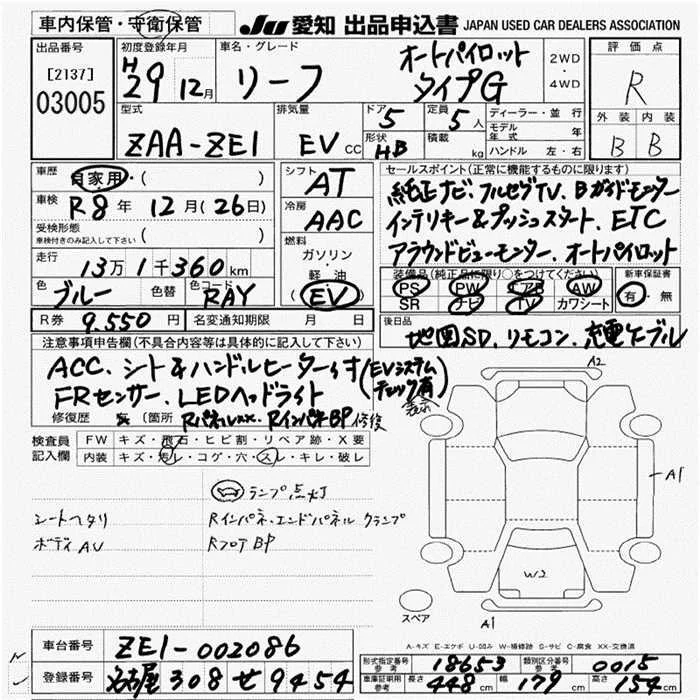 車内保管・守衛保管 JU 愛知 出品申込書 JAPAN USED CAR DEALERS ASSOCIATION
出品番号 [2137] 03005
初度登録年月 H29 12月
車名・グレード リーフ オートパイロット タイプG
2WD・4WD
評価点 R
外装 B 内装 B
型式 ZAA-ZE1
排気量 EV CC
ドア 5 定員 5人
形状 HB 積載 kg
ディーラー・並行
モデル年式 年
ハンドル 左・右
車歴 自家用・( )
車検 R8年 12月(26日)
受検形態 車検付きのみ記入して下さい ( )
走行 13万1千360km
色 ブルー 色替 色コード RAY
シフト AT
冷房 AAC
燃料 ガソリン・軽油 (EV)
セールスポイント(正常に機能するものに限ります)
純正ナビ、フルセグTV、Bガイドモニター
インテリキー&プッシュスタート、ETC
アラウンドビューモンター、オートパイロット
装備品(純正品に限り○をつけてください)
PS PW エアB AW
SR ナビ TV カワシート
新車保証書 有・無
R券 9.550円 名変通知期限 月 日
後日品 地図SD、リモコン、充電ケーブル
注意事項申告欄(不具合内容等は具体的に記入して下さい)
ACC、シート&ハンドルヒーター付(EVシステムチェック有)
FRセンサー、LEDヘッドライト 表示
修復歴 (箇所 Rインパネ BP 修復
検査員記入欄
FW キズ・飛石・ヒビ割・リペア跡・X要
内装 キズ・汚レ・コゲ・穴・スレ・キレ・破レ
ランプ点灯
シートヘタリ Rインパネ、エンドパネル クランプ
ボディAU Rフロア BP
A2
A1
W2
スペア A1
A-キズ E-エクボ U-凹み W-補修跡 S-サビ C-腐食 XX-交換済
車台番号 ZE1-002086
登録番号 名古屋 308 せ 9454
形式指定番号 参考 18653 類別区分番号 参考 0015
車庫証明用 参考 長さ 448cm 幅 179cm 高さ 154cm